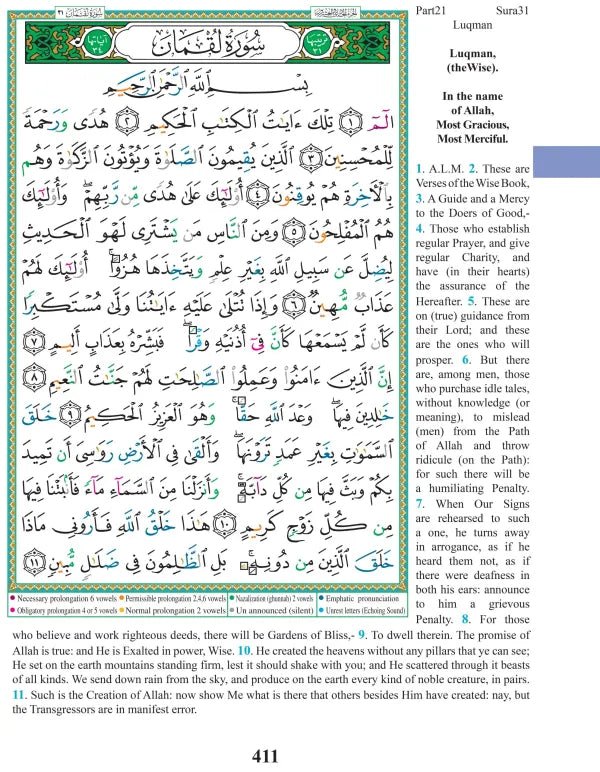 الجزء الحادي والعشرون
سورة لقمان ٣١
ترتيبها ٣١
سُورَةُ لُقْمَانَ
آياتها ٣٤
بِسْمِ اللَّهِ الرَّحْمَٰنِ الرَّحِيمِ
الٓمٓ ١ تِلْكَ ءَايَٰتُ ٱلْكِتَٰبِ ٱلْحَكِيمِ ٢ هُدًى وَرَحْمَةً
لِّلْمُحْسِنِينَ ٣ ٱلَّذِينَ يُقِيمُونَ ٱلصَّلَوٰةَ وَيُؤْتُونَ ٱلزَّكَوٰةَ وَهُم
بِٱلْءَاخِرَةِ هُمْ يُوقِنُونَ ٤ أُو۟لَٰٓئِكَ عَلَىٰ هُدًى مِّن رَّبِّهِمْ ۖ وَأُو۟لَٰٓئِكَ
هُمُ ٱلْمُفْلِحُونَ ٥ وَمِنَ ٱلنَّاسِ مَن يَشْتَرِى لَهْوَ ٱلْحَدِيثِ
لِيُضِلَّ عَن سَبِيلِ ٱللَّهِ بِغَيْرِ عِلْمٍ وَيَتَّخِذَهَا هُزُوًا ۚ أُو۟لَٰٓئِكَ لَهُمْ
عَذَابٌ مُّهِينٌ ٦ وَإِذَا تُتْلَىٰ عَلَيْهِ ءَايَٰتُنَا وَلَّىٰ مُسْتَكْبِرًا
كَأَن لَّمْ يَسْمَعْهَا كَأَنَّ فِىٓ أُذُنَيْهِ وَقْرًا ۖ فَبَشِّرْهُ بِعَذَابٍ أَلِيمٍ ٧
إِنَّ ٱلَّذِينَ ءَامَنُوا۟ وَعَمِلُوا۟ ٱلصَّٰلِحَٰتِ لَهُمْ جَنَّٰتُ ٱلنَّعِيمِ ٨
خَٰلِدِينَ فِيهَا ۖ وَعْدَ ٱللَّهِ حَقًّا ۚ وَهُوَ ٱلْعَزِيزُ ٱلْحَكِيمُ ٩ خَلَقَ
ٱلسَّمَٰوَٰتِ بِغَيْرِ عَمَدٍ تَرَوْنَهَا ۖ وَأَلْقَىٰ فِى ٱلْأَرْضِ رَوَٰسِىَ أَن تَمِيدَ
بِكُمْ وَبَثَّ فِيهَا مِن كُلِّ دَآبَّةٍ ۚ وَأَنزَلْنَا مِنَ ٱلسَّمَآءِ مَآءً فَأَنۢبَتْنَا فِيهَا
مِن كُلِّ زَوْجٍ كَرِيمٍ ١٠ هَٰذَا خَلْقُ ٱللَّهِ فَأَرُونِى مَاذَا
خَلَقَ ٱلَّذِينَ مِن دُونِهِۦ ۚ بَلِ ٱلظَّٰلِمُونَ فِى ضَلَٰلٍ مُّبِينٍ ١١
Necessary prolongation 6 vowels Permissible prolongation 2,4,6 vowels Nazalization (ghunnah) 2 vowels Emphatic pronunciation
Obligatory prolongation 4 or 5 vowels Normal prolongation 2 vowels Un announced (silent) Unrest letters (Echoing Sound)
Part21 Sura31
Luqman
Luqman,
(theWise).
In the name
of Allah,
Most Gracious,
Most Merciful.
1. A.L.M. 2. These are
Verses of the Wise Book,
3. A Guide and a Mercy
to the Doers of Good,-
4. Those who establish
regular Prayer, and give
regular Charity, and
have (in their hearts)
the assurance of the
Hereafter. 5. These are
on (true) guidance from
their Lord; and these
are the ones who will
prosper. 6. But there
are, among men, those
who purchase idle tales,
without knowledge (or
meaning), to mislead
(men) from the Path
of Allah and throw
ridicule (on the Path):
for such there will be
a humiliating Penalty.
7. When Our Signs
are rehearsed to such
a one, he turns away
in arrogance, as if he
heard them not, as if
there were deafness in
both his ears: announce
to him a grievous
Penalty. 8. For those
who believe and work righteous deeds, there will be Gardens of Bliss,- 9. To dwell therein. The promise of
Allah is true: and He is Exalted in power, Wise. 10. He created the heavens without any pillars that ye can see;
He set on the earth mountains standing firm, lest it should shake with you; and He scattered through it beasts
of all kinds. We send down rain from the sky, and produce on the earth every kind of noble creature, in pairs.
11. Such is the Creation of Allah: now show Me what is there that others besides Him have created: nay, but
the Transgressors are in manifest error.
411